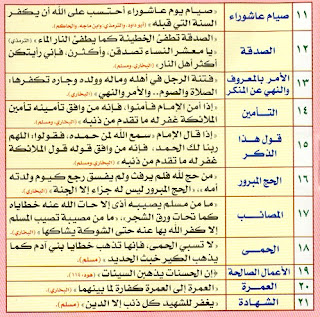 ١١ صيام عاشوراء
« صيام يوم عاشوراء أحتسب على الله أن يكفر
السنة التي قبله » (أبو داود، والترمذي، وابن ماجه، والحاكم).
١٢ الصدقة
« الصدقة تطفئ الخطيئة كما يطفئ النار الماء » (الترمذي)
« يا معشر النساء تصدقن، وأكثرن، فإني رأيتكن
أكثر أهل النار » (البخاري، ومسلم).
١٣ الأمر بالمعروف والنهي عن المنكر
« فتنة الرجل في أهله وماله وولده وجاره تكفرها:
الصلاة والصوم.. والأمر والنهي » (البخاري).
١٤ التأمين
« إذا أمن الإمام فأمنوا، فإنه من وافق تأمينه تأمين
الملائكة غفر له ما تقدم من ذنبه » (البخاري، ومسلم)
١٥ قول هذا الذكر
« إذا قال الإمام: سمع الله لمن حمده، فقولوا: اللهم
ربنا لك الحمد، فإنه من وافق قوله قول الملائكة
غفر له ما تقدم من ذنبه » (البخاري، ومسلم)
١٦ الحج المبرور
« من حج لله فلم يرفث ولم يفسق رجع كيوم ولدته
أمه .. » « الحج المبرور ليس له جزاء إلا الجنة » (البخاري).
١٧ المصائب
« ما من مسلم يصيبه أذى إلا حات الله عنه خطاياه
كما تحات ورق الشجر.. ما من مصيبة تصيب المسلم
إلا كفر الله بها عنه حتى الشوكة يشاكها » (البخاري).
١٨ الحمى
« لا تسبي الحمى، فإنها تذهب خطايا بني آدم كما
يذهب الكير خبث الحديد » (مسلم).
١٩ الأعمال الصالحة
﴿إن الحسنات يذهبن السيئات﴾ (هود: ١١٤).
٢٠ العمرة
« العمرة إلى العمرة كفارة لما بينهما » (البخاري).
٢١ الشهادة
« يغفر للشهيد كل ذنب إلا الدين » (مسلم).